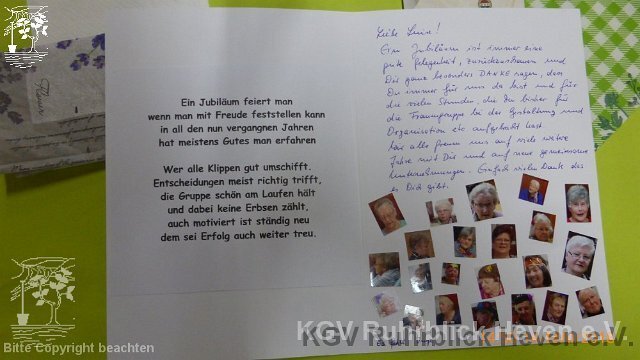 Ein Jubiläum feiert man
wenn man mit Freude feststellen kann
in all den nun vergangnen Jahren
hat meistens Gutes man erfahren
Wer alle Klippen gut umschifft.
Entscheidungen meist richtig trifft,
die Gruppe schön am Laufen hält
und dabei keine Erbsen zählt,
auch motiviert ist ständig neu
dem sei Erfolg auch weiter treu.
Liebe
Ein Jubiläum ist immer eine
gute Gelegenheit, zurückzuschauen und
Dir ganz besonders DANKE sagen, dass
Du immer für uns da bist und für
die vielen Stunden, die Du bisher für
die Frauengruppe bei der Gestaltung und
Organisation etc aufgebracht hast
Wir alle freuen uns auf viele weitere
Jahre mit Dir und auf neue gemeinsame
Unternehmungen. Einfach vielen Dank das
es Dich gibt.
KGV Ruhrblick Heven e.V.
Bitte Copyright beachten